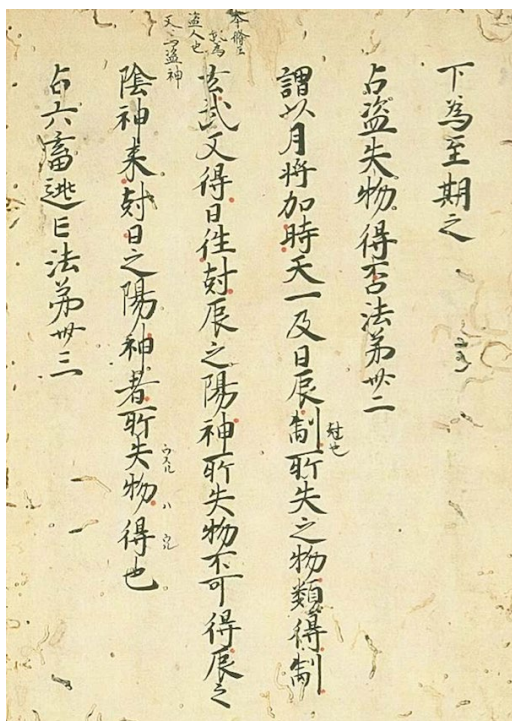 下為至期之
占盗失物得否法弟卅二
謂以月将加時天一及日辰制所失之物類得制
尅也
盗人也
天之盗神
玄武又得日往尅辰之陽神所失物不可得辰之
陰神来尅日之陽神者所失物得也
占六畜逃亡法弟卅三